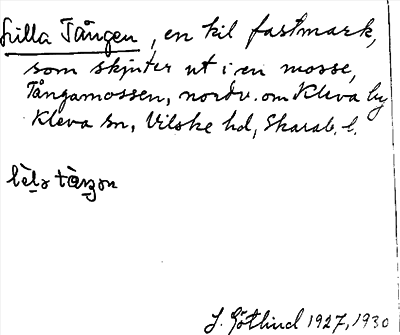 Lilla Tången, en kil fastmark,
som skjuter ut i en mosse,
Tångamossen, nordv. om Kleva by
Kleva sn, Vilske hd, Skarab. l.
J. Götlind 1927, 1930